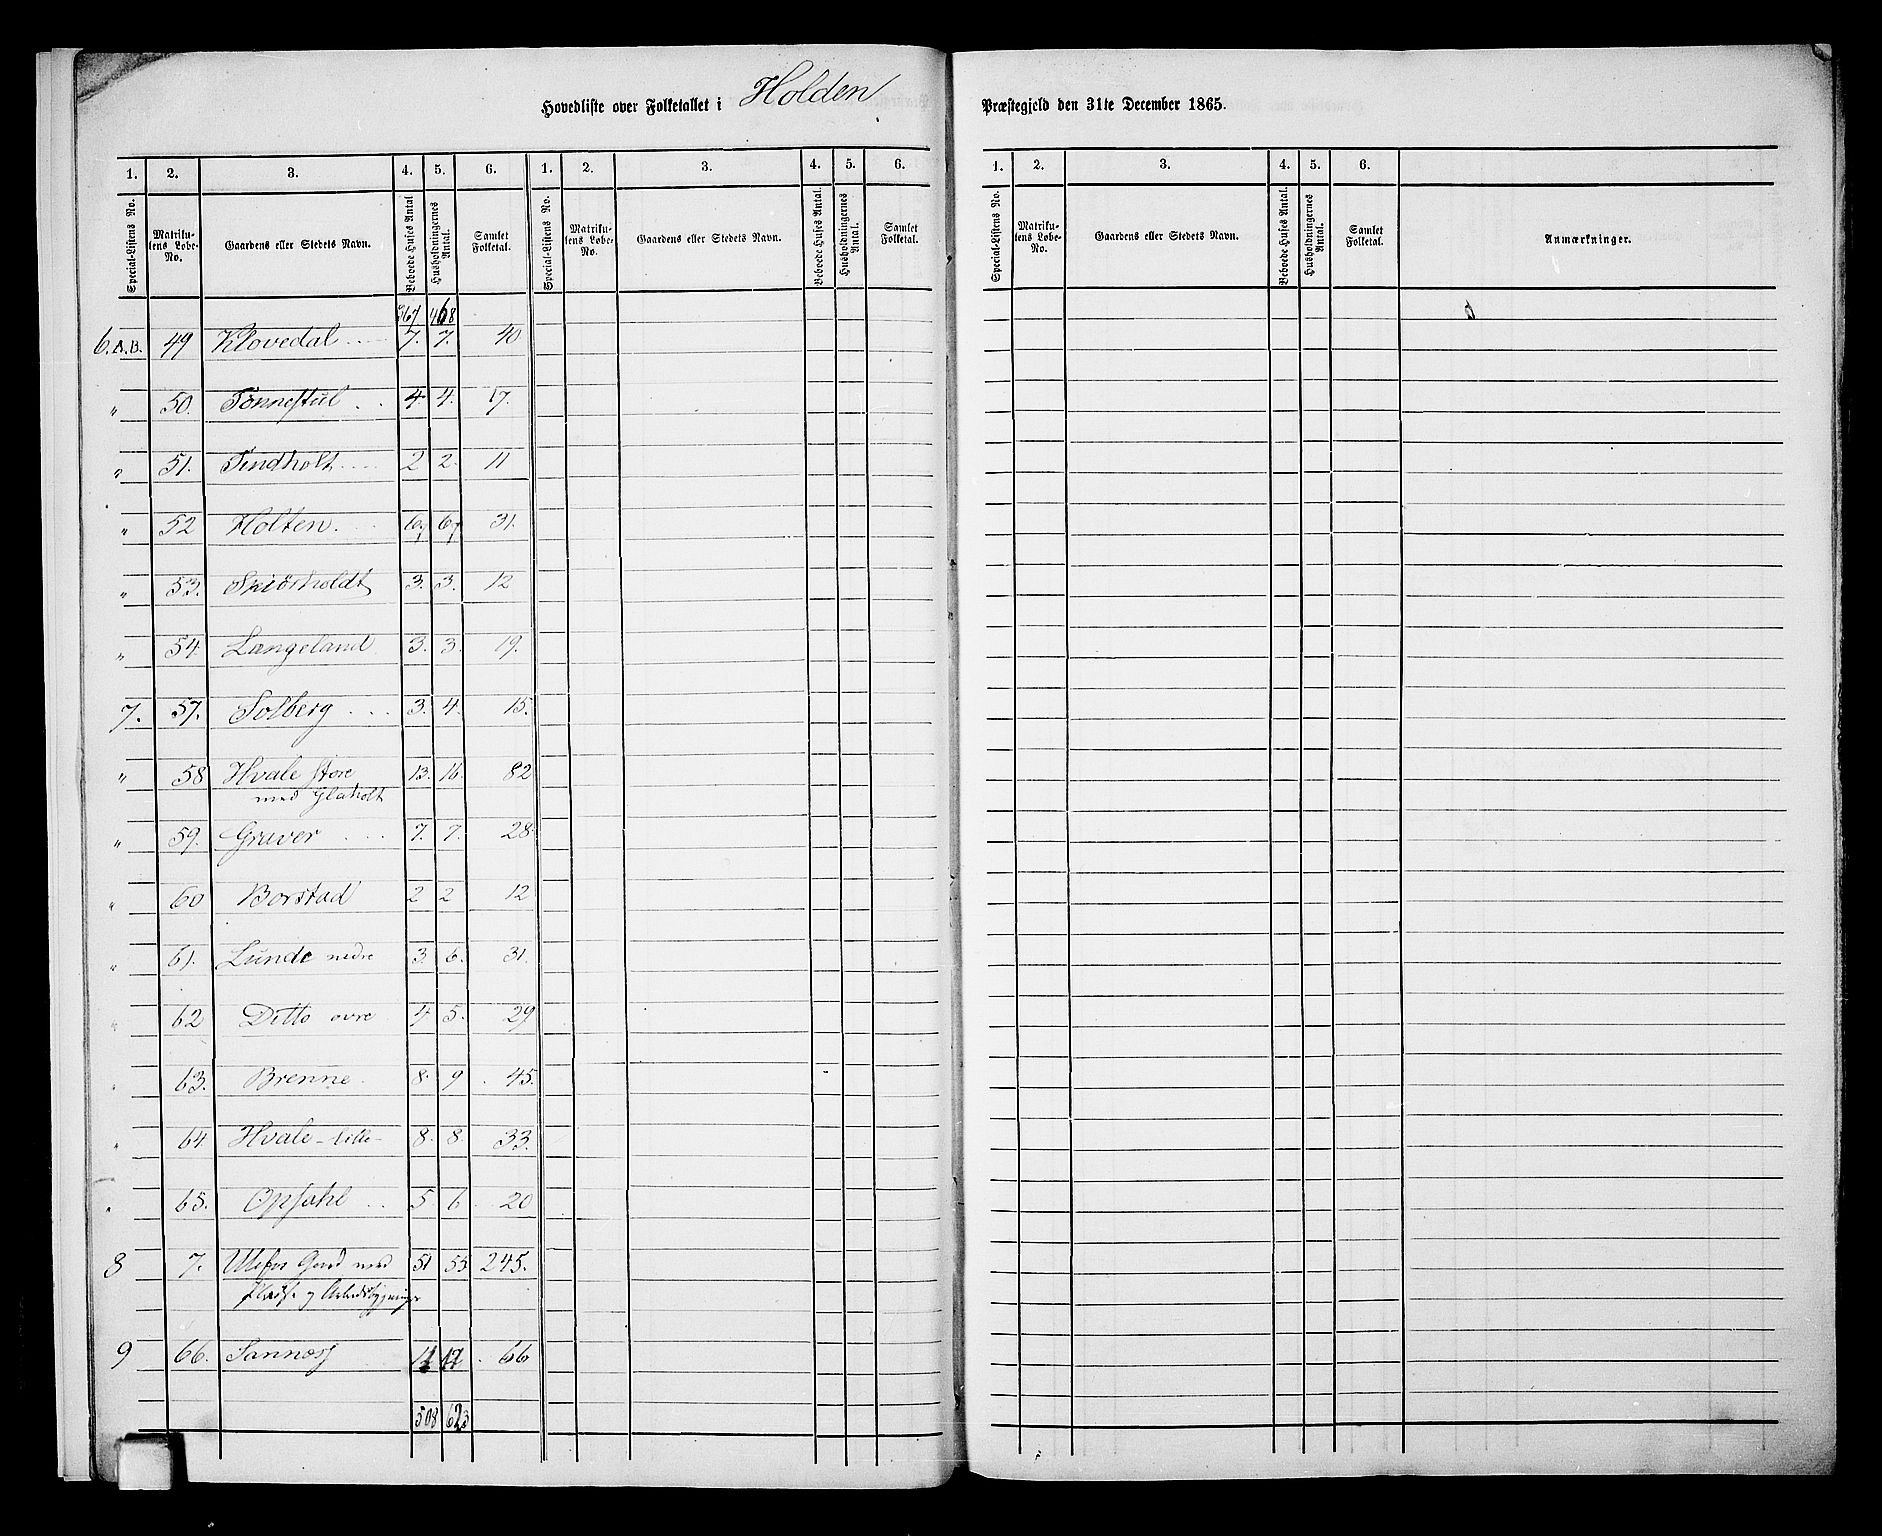 Hovedliste over Folketallet i Holden Præstegjeld den 31te December 1865.
1. 2. 3. 4. 5. 6. 1. 2. 3. 4. 5. 6. 1. 2. 3. 4. 5. 6.
Special-Listens No. Matrikulens Løbe-No. Gaardens eller Stedets Navn. Beboede Huses Antal Husholdningernes Antal. Samlet Folketal. Special-Listens No. Matrikulens Løbe-No. Gaardens eller Stedets Navn. Beboede Huses Antal. Husholdningernes Antal. Samlet Folketal. Special-Listens No. Matrikulens Løbe-No. Gaardens eller Stedets Navn. Beboede Huses Antal. Husholdningernes Antal. Samlet Folketal. Anmærkninger.
367 468
6. A.B. 49 Klovedal 7. 7. 40
" 50. Tonnestul 4. 4. 17.
" 51. Tindholt 2 2. 11
" 52 Holten. 31.
" 53. Skiørholdt 3. 3. 12
" 54. Langeland 3. 3. 19.
7. 57. Solberg 3. 4. 15.
" 58 Hvale store 13. 16. 82
med
" 59. Graver 7. 7. 28
" 60 Borstad 2 2 12
" 61. Lunde nedre 3. 6. 31.
" 62 Ditto ovre 4 5. 29
" 63. Brenne 8. 9 45.
" 64 Hvale-lille- 8. 8. 33.
" 65. Opsahl 5 6 20
8 7. Ulefos Gaard med 51 55 245.
Pladse og Arbeidsbygninger
9 66. Sannæs 66
508 623